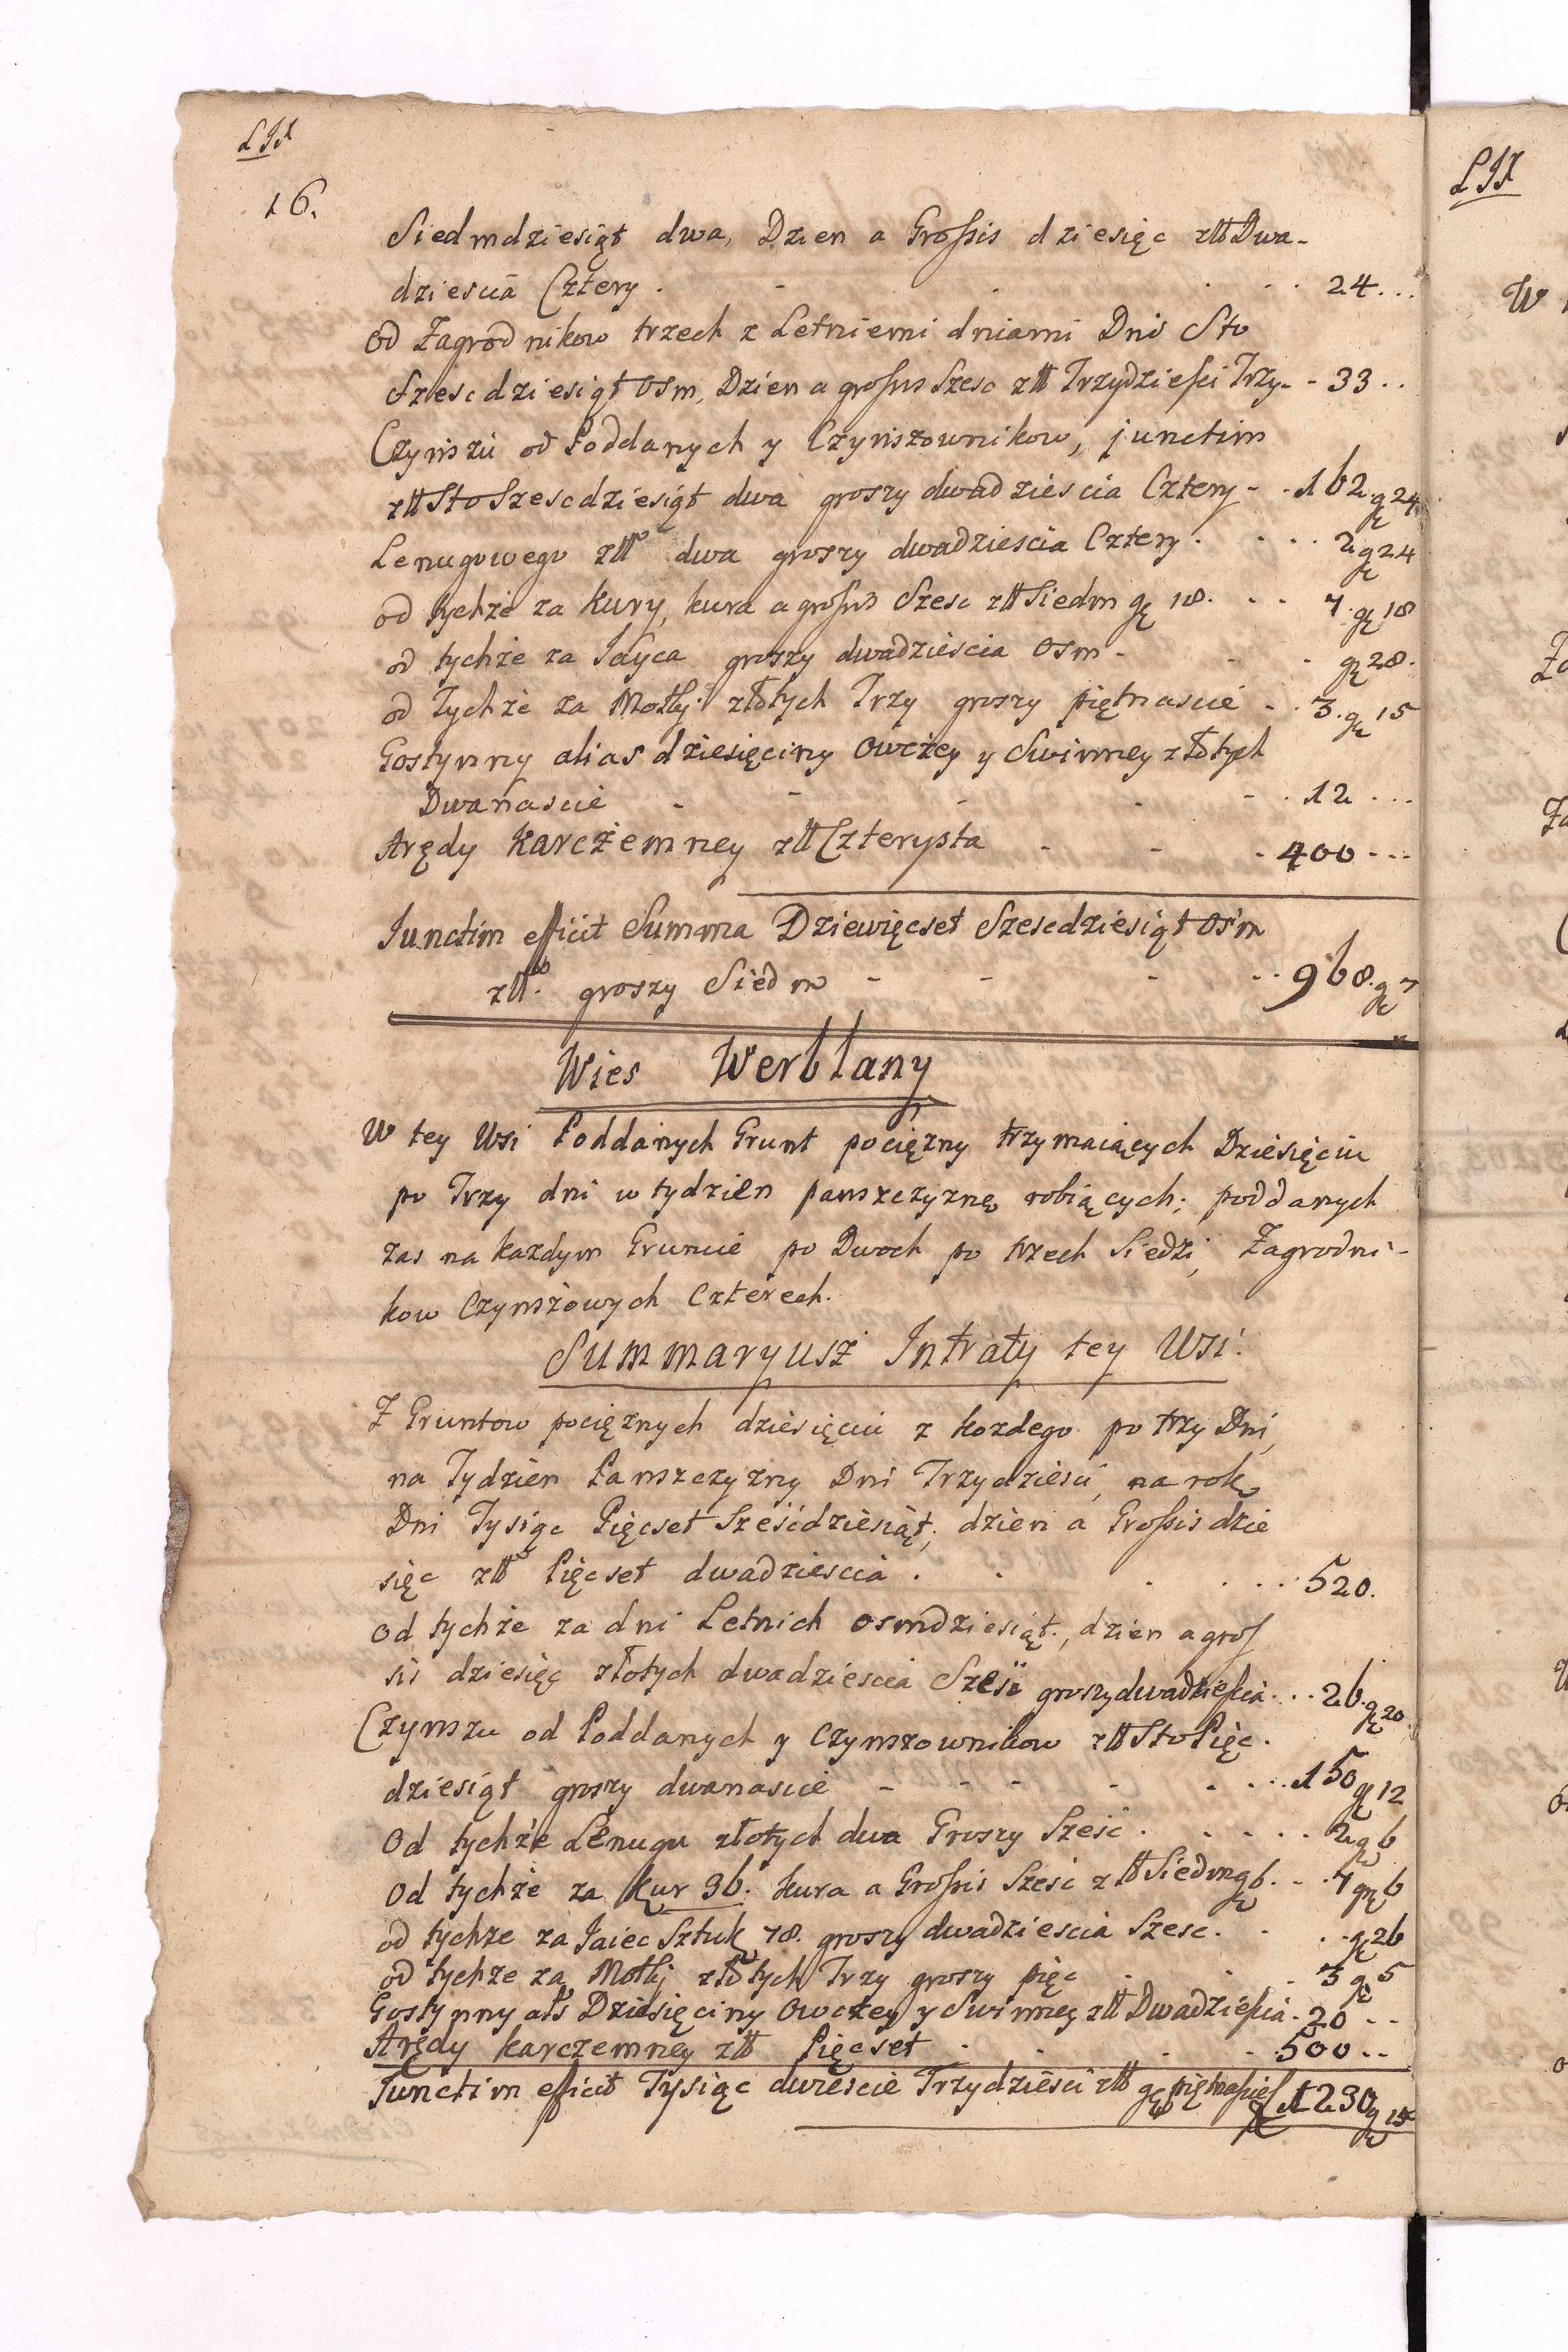 LIX
16.
Siedmdziesiąt dwa, Dzien a Grossis dziesięc złł Dwa-
dziescia Cztery . - . . . 24...
Od Zagrodnikow trzech z Letniemi dniami Dni Sto
Szescdziesiąt Osm, Dzien a grossis Szesc złł Trzydziesci Trzy - - 33..
Czynszu od Poddanych y Czynszownikow, junctim
złł Sto Szescdziesiąt dwa groszy dwadziescia Cztery - . 162. gr 24
Lenugowego złł dwa groszy dwadziescia Cztery . . . . 2 gr 24
od tychże za kury, kura a grossis Szesc złł Siedm gr 18. . . 7. gr 18
od tychże za Jayca groszy dwadziescia Osm - - . gr 28.
od Tychże za Motki złotych Trzy groszy piętnascie - . 3. gr 15
Gostynny alias dziesięciny Owczey y Swinney złotych
Dwanascie - - - - - . 12 ...
Arędy Karczemney złł Czterysta - - . 400 ...
Junctim efficit Summa Dziewięcset Szescdziesiąt Osm
złł. groszy Siedm - - - . . 968. gr 7
Wies Werblany
W tey Wsi Poddanych Grunt pociężny trzymaiących Dziesięciu
po Trzy dni w tydzien panszczyznę robiących; poddanych
zas na każdym Gruncie po Dwoch po trzech Siedzi, Zagrodni-
kow Czynszowych Czterech.
Summaryusz Intraty tey Wsi.
Z Gruntow pociężnych dziesięciu z kozdego po trzy Dni,
na Tydzien Panszczyzny Dni Trzydziesci, na rok
Dni Tysiąc Pięcset Sześćdziesiąt, dzien a Grossis dzie
sięc złł Pięcset dwadziescia . . . . . . 520.
Od tychże za dni Letnich osmdziesiąt, dzien a gros
sis dziesięc złotych dwadziescia Szesc groszy dwadziescia . . . 26. gr 20.
Czynszu od Poddanych y Czynszownikow złł Sto Pięc-
dziesiąt groszy dwanascie - - - - . . . . 150 gr 12
Od tychże Lenugu złotych dwa Groszy Sześć . . . . . 2 gr 6
Od tychże za kur 36. kura a Grossis Szesc złł Siedm gr 6. - . 7 gr 6
od tychże za Jaiec Sztuk 78. groszy dwadziescia Szesc . . . . gr 26
od tychże za Motki złotych Trzy groszy pięc . . . 3 gr 5
Gostynny als Dziesięciny Owczey y Swinney złł Dwadziescia . 20 - -
Arędy karczemney złł Pięcset . . . . 500 ..
Junctim efficit Tysiąc dwiescie Trzydziesci złł gr piętnascie 1230 gr 15
LIX